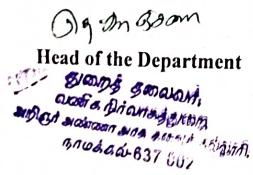 Head of the Department
துறைத் தலைவர்,
வணிக நிர்வாகத்துறை
அறிஞர் அண்ணா அரசு கலைக் கல்லூரி,
நாமக்கல்-637 002